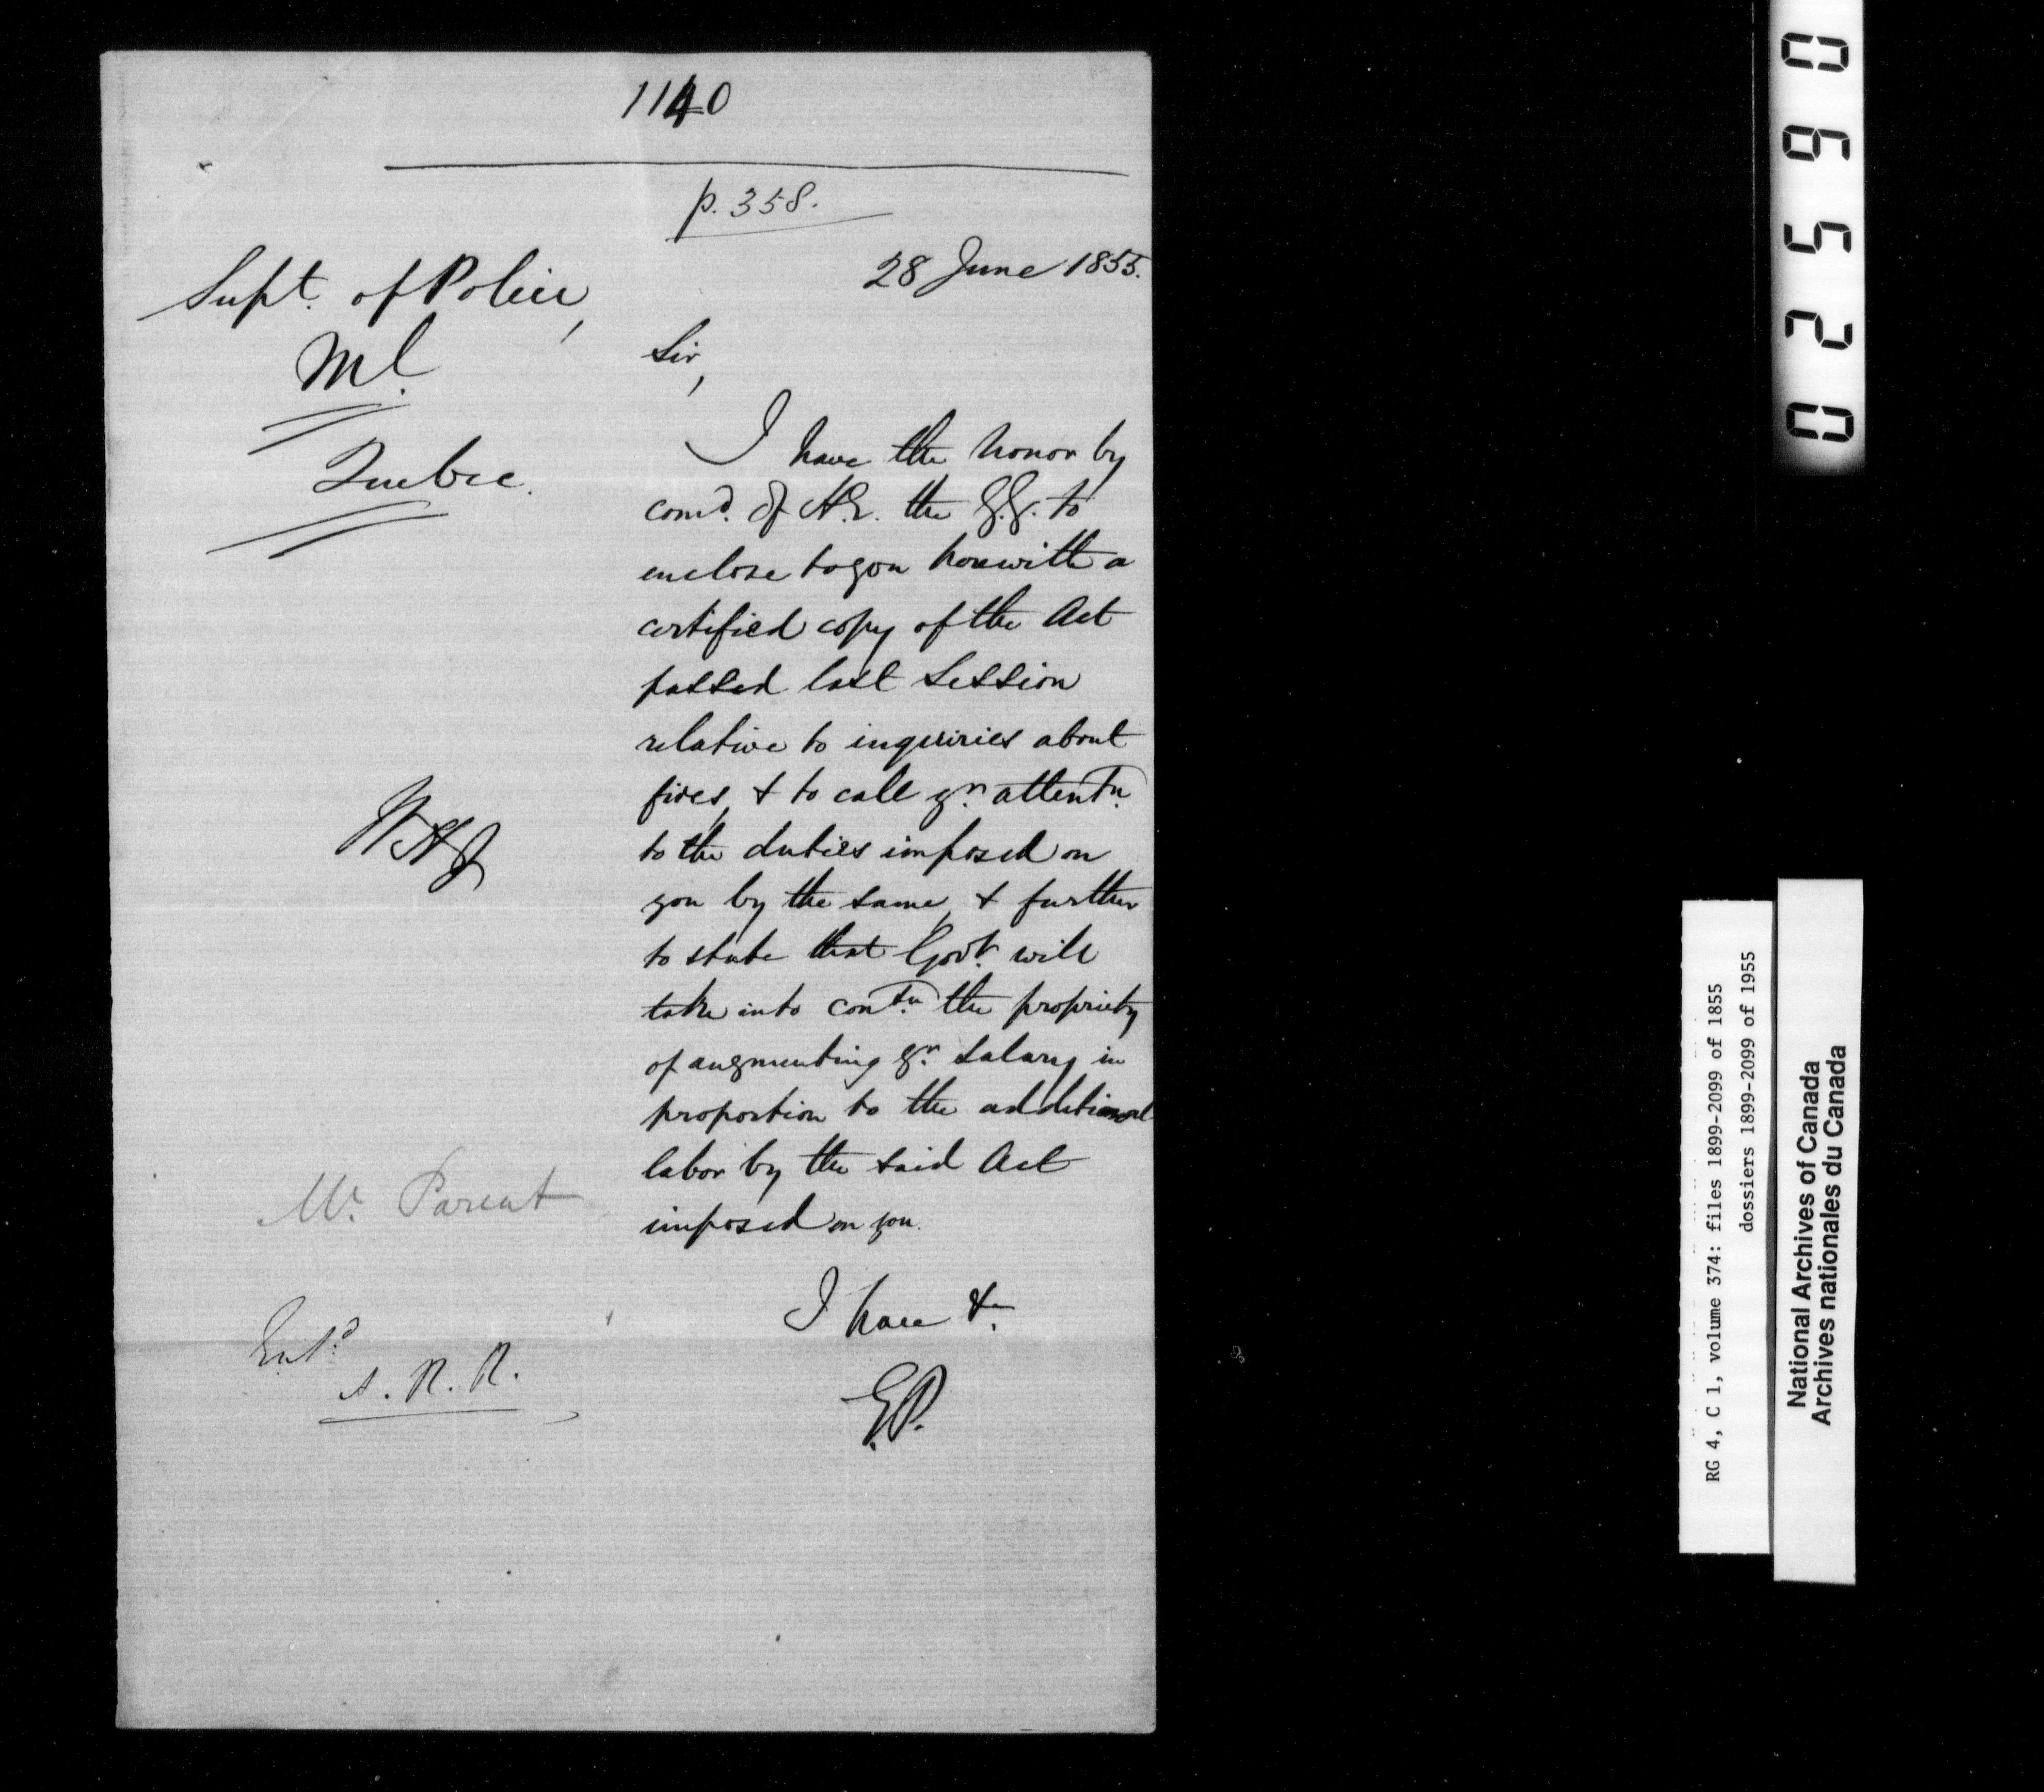 1140
p. 358.
28 June 1855.
Supt. of Police,
Ml.
Quebec.
Sir,
I have the honor by
comd. of H.E. the G.G. to
enclose to you herewith a
certified copy of the Act
passed last Session
relative to inquiries about
fires, & to call yr. attentn.
to the duties imposed on
you by the same, & further
to state that Govt. will
take into contn. the propriety
of augmenting yr. salary in
proportion to the additional
labor by the said Act
imposed on you.
I have &.
E.P.
Mr. Parent
Entd.
A. R. R.
02590
RG 4, C 1, volume 374: files 1899-2099 of 1855
dossiers 1899-2099 of 1955
National Archives of Canada
Archives nationales du Canada